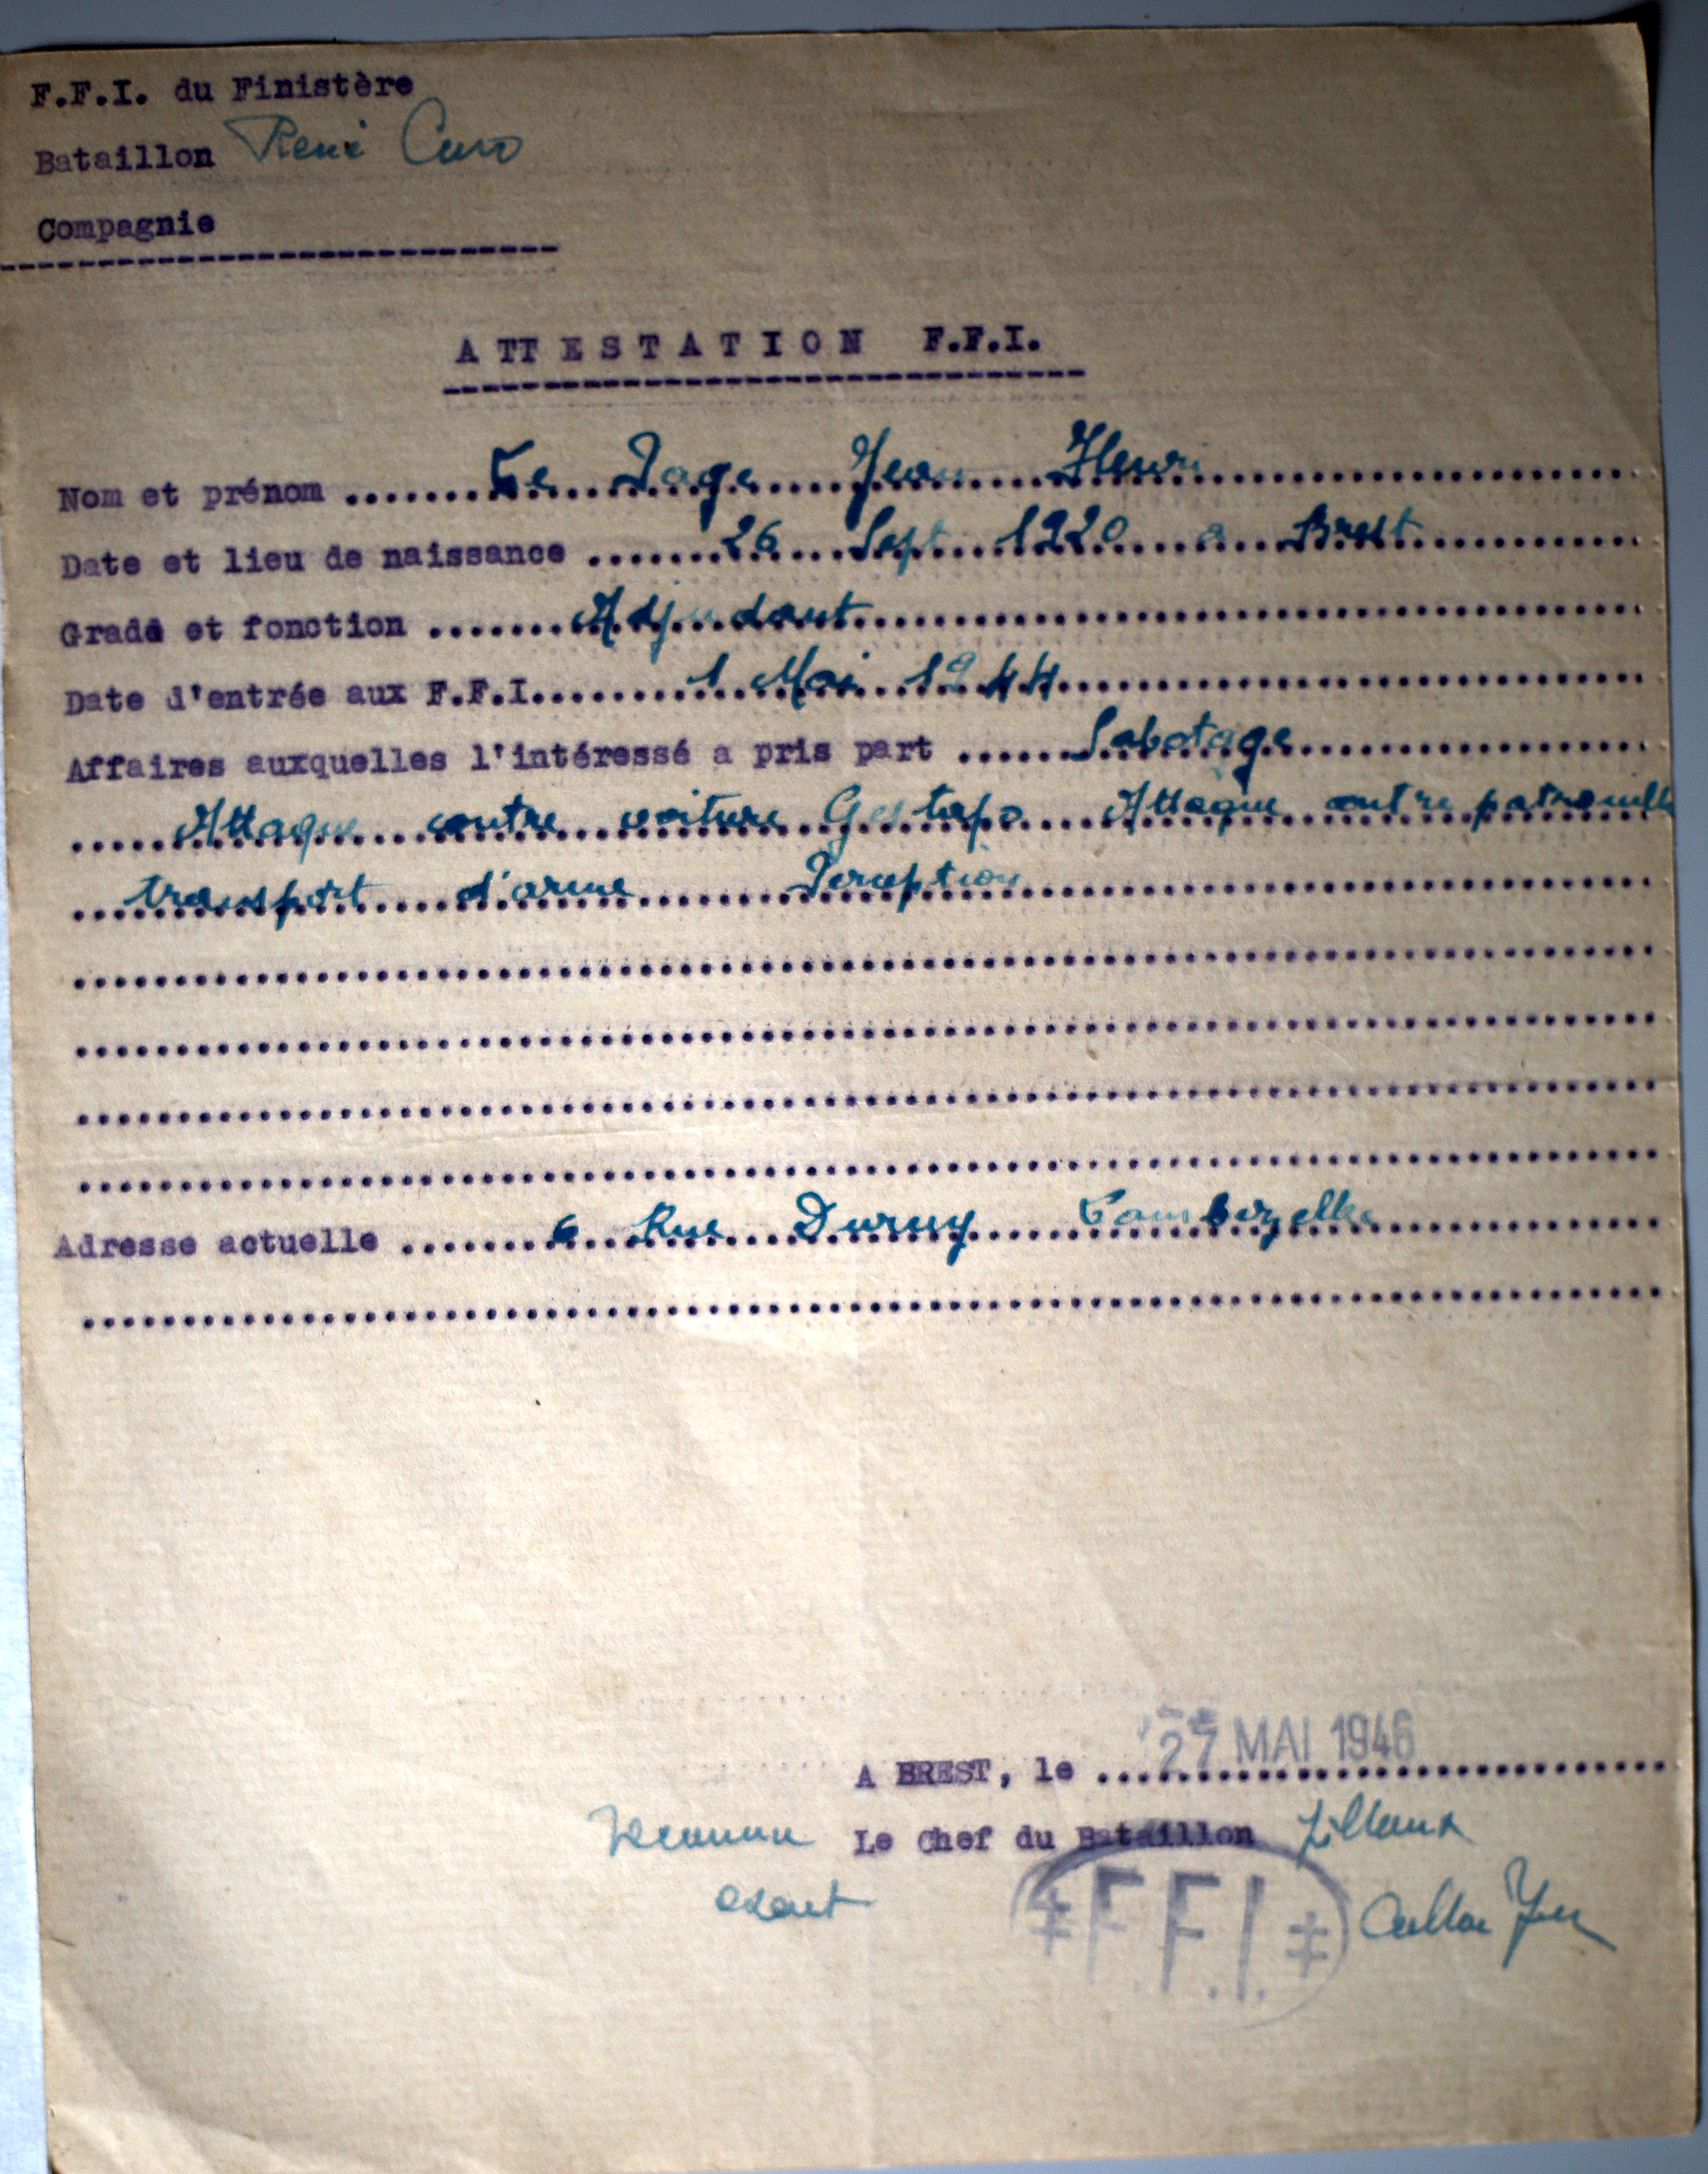 F.F.I. du Finistère
Bataillon René Caro
Compagnie
ATTESTATION F.F.I.
Nom et prénom ....... Le Page Jean Henri
Date et lieu de naissance ....... 26 Sept 1920 a Brest
Grade et fonction ....... Adjudant
Date d'entrée aux F.F.I....... 1 Mai 1944
Affaires auxquelles l'intéressé a pris part ...... Sabotage
Attaque contre voiture Gestapo Attaque contre patrouille
transport d'arme Perception
Adresse actuelle ....... 6 Rue Duruy Lambezellec
A BREST, le 27 MAI 1946
Le Chef du Bataillon
F.F.I.